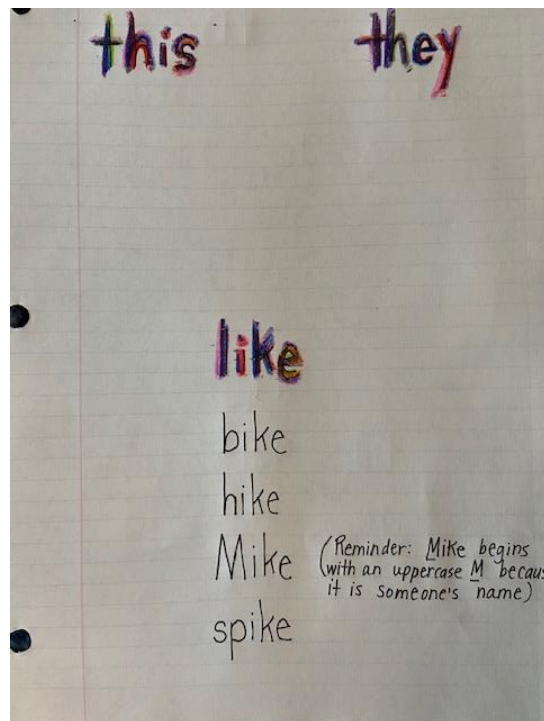 this they
like
bike
hike
Mike (Reminder: Mike begins
(with an uppercase M becaus
it is someone's name)
spike